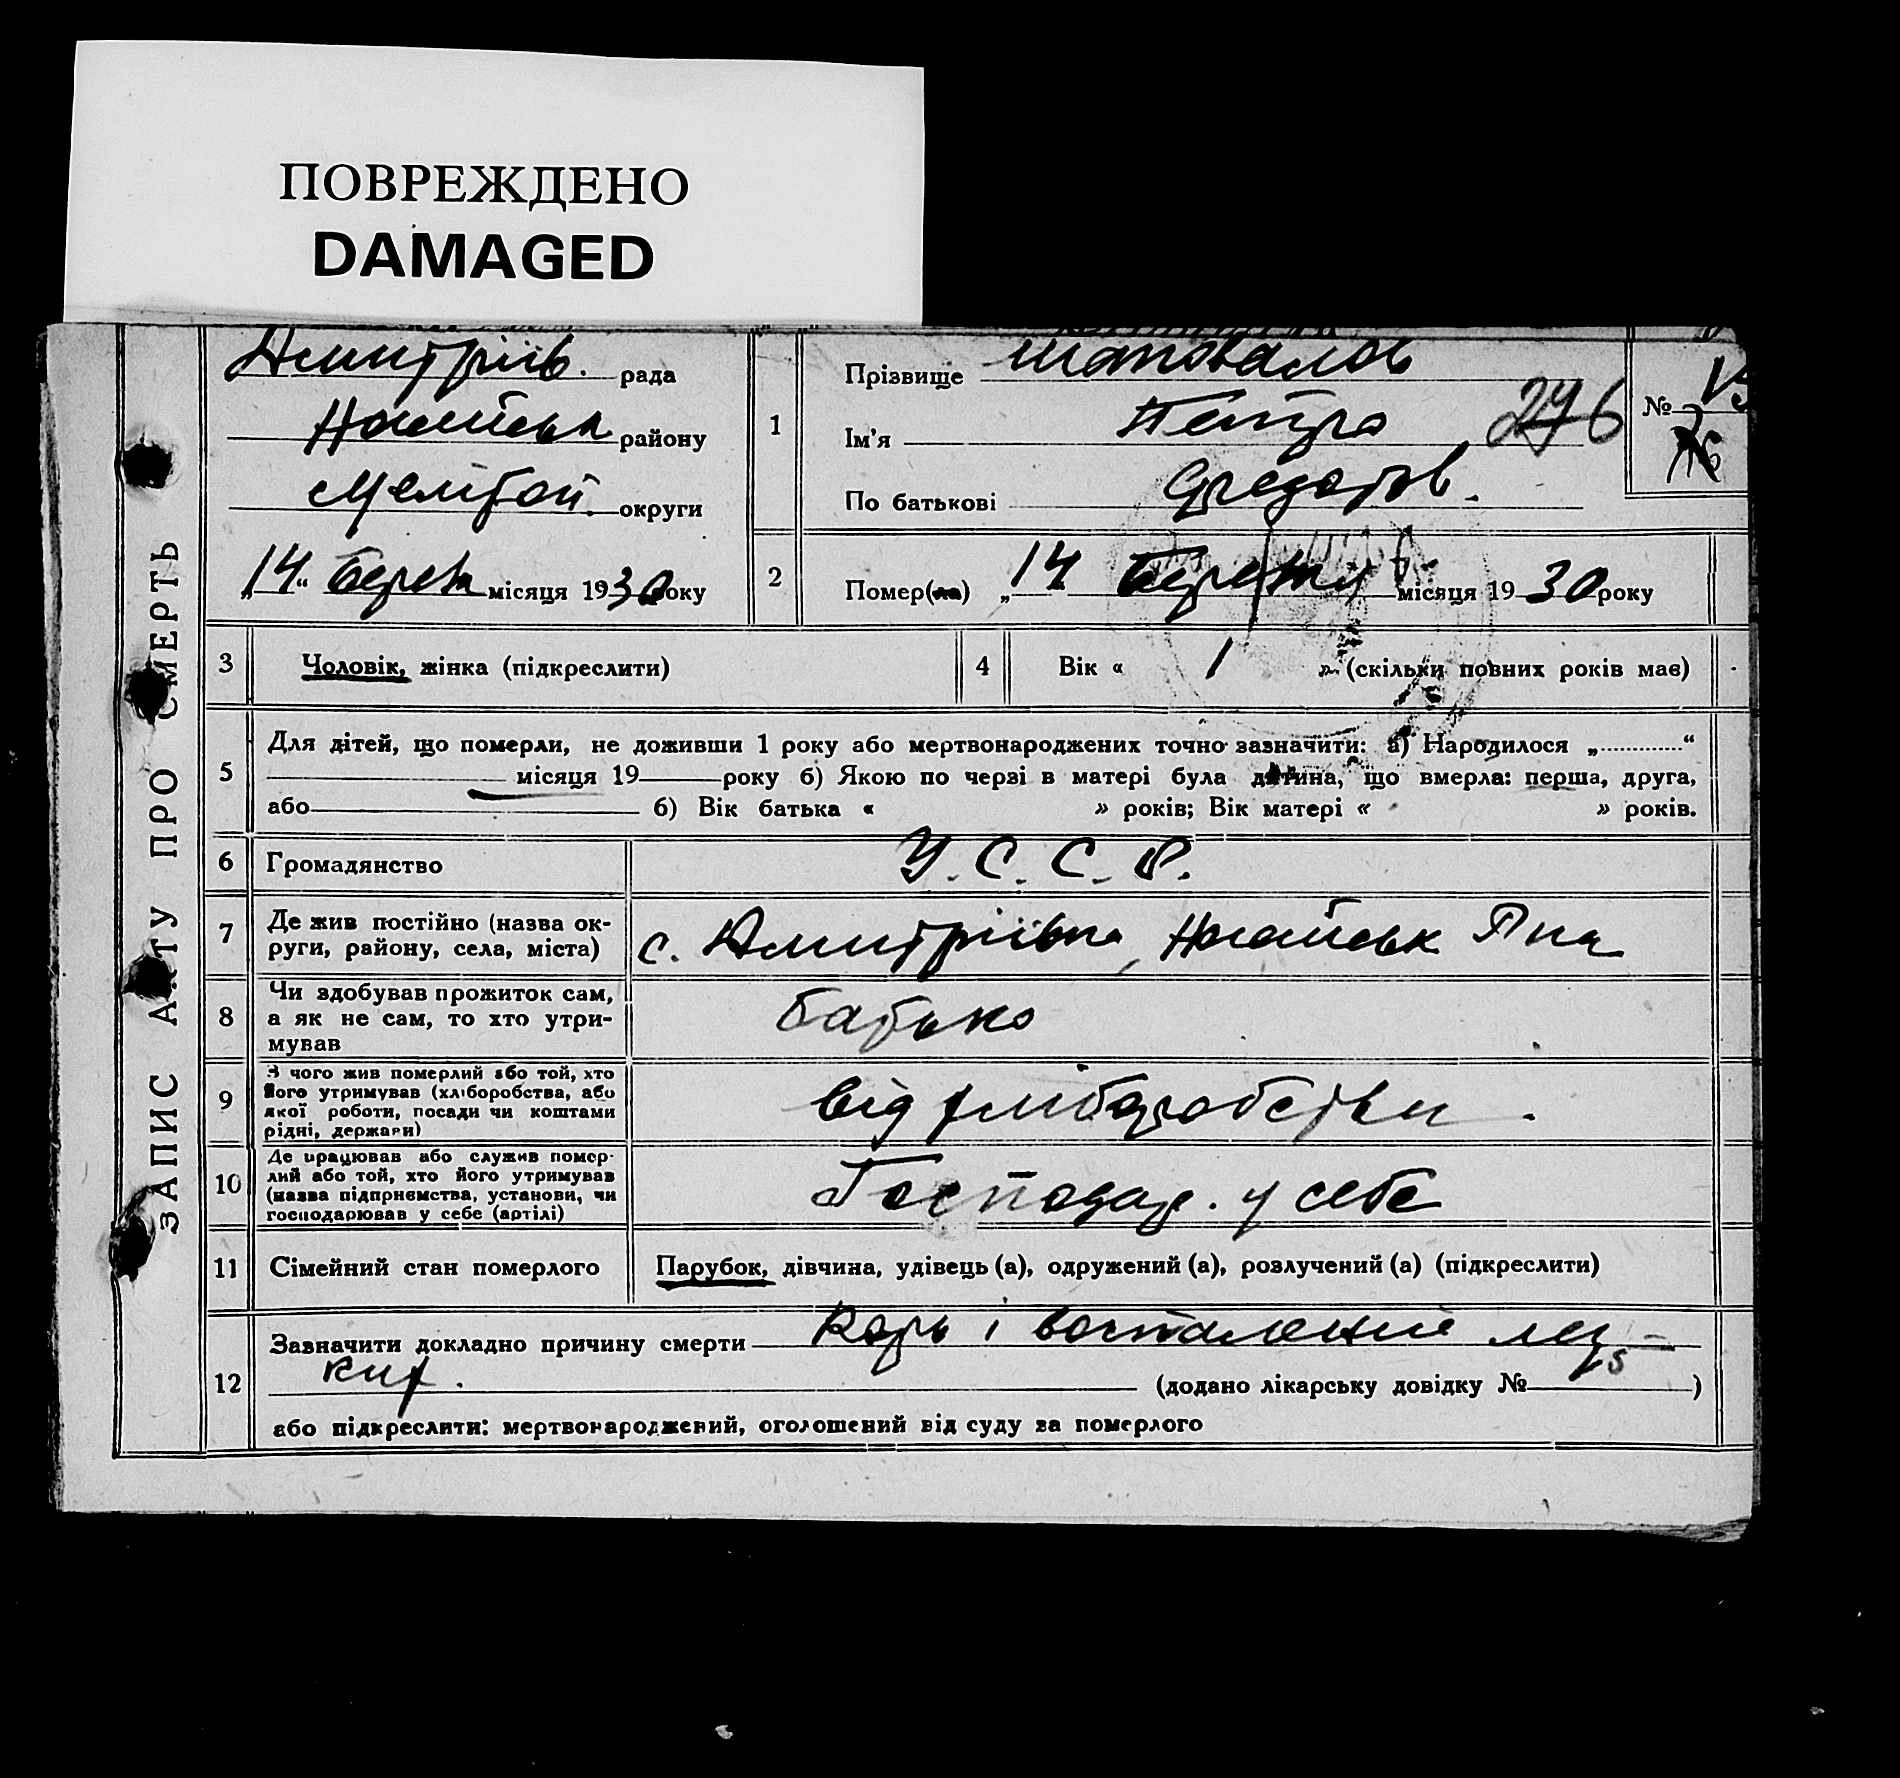 ПОВРЕЖДЕНО
DAMAGED
ЗАПИС АКТУ ПРО СМЕРТЬ
Дмитріїв. рада
Ногайська району
Мелітоп. округи
„14“ Берез місяця 1930 року
1
Прізвище Шаповалов
Ім’я Петро 276
По батькові Федотов.
№
2
Помер(ла) „14 Березня місяця 1930 року
3 Чоловік, жінка (підкреслити)
4 Вік « 1 » (скільки повних років має)
5
Для дітей, що померли, не доживши 1 року або мертвонароджених точно зазначити: а) Народилося „ “
місяця 19 року б) Якою по черзі в матері була дитина, що вмерла: перша, друга,
або б) Вік батька « » років; Вік матері « » років.
6 Громадянство У. С. С. Р.
7 Де жив постійно (назва ок-
руги, району, села, міста) с. Дмитрівка, Ногайськ Рна
8 Чи здобував прожиток сам,
а як не сам, то хто утри-
мував
батько
9 З чого жив померлий або той, хто
його утримував (хліборобства, або
якої роботи, посади чи коштами
рідні, держави)
від хліборобства.
10 Де працював або служив помер-
лий або той, хто його утримував
(назва підприємства, установи, чи
господарював у себе (артілі)
Господар. у себе
11 Сімейний стан померлого Парубок, дівчина, удівець (а), одружений (а), розлучений (а) (підкреслити)
12 Зазначити докладно причину смерти Корь і воспаление лег-
ких. (додано лікарську довідку № )
або підкреслити: мертвонароджений, оголошений від суду за померлого